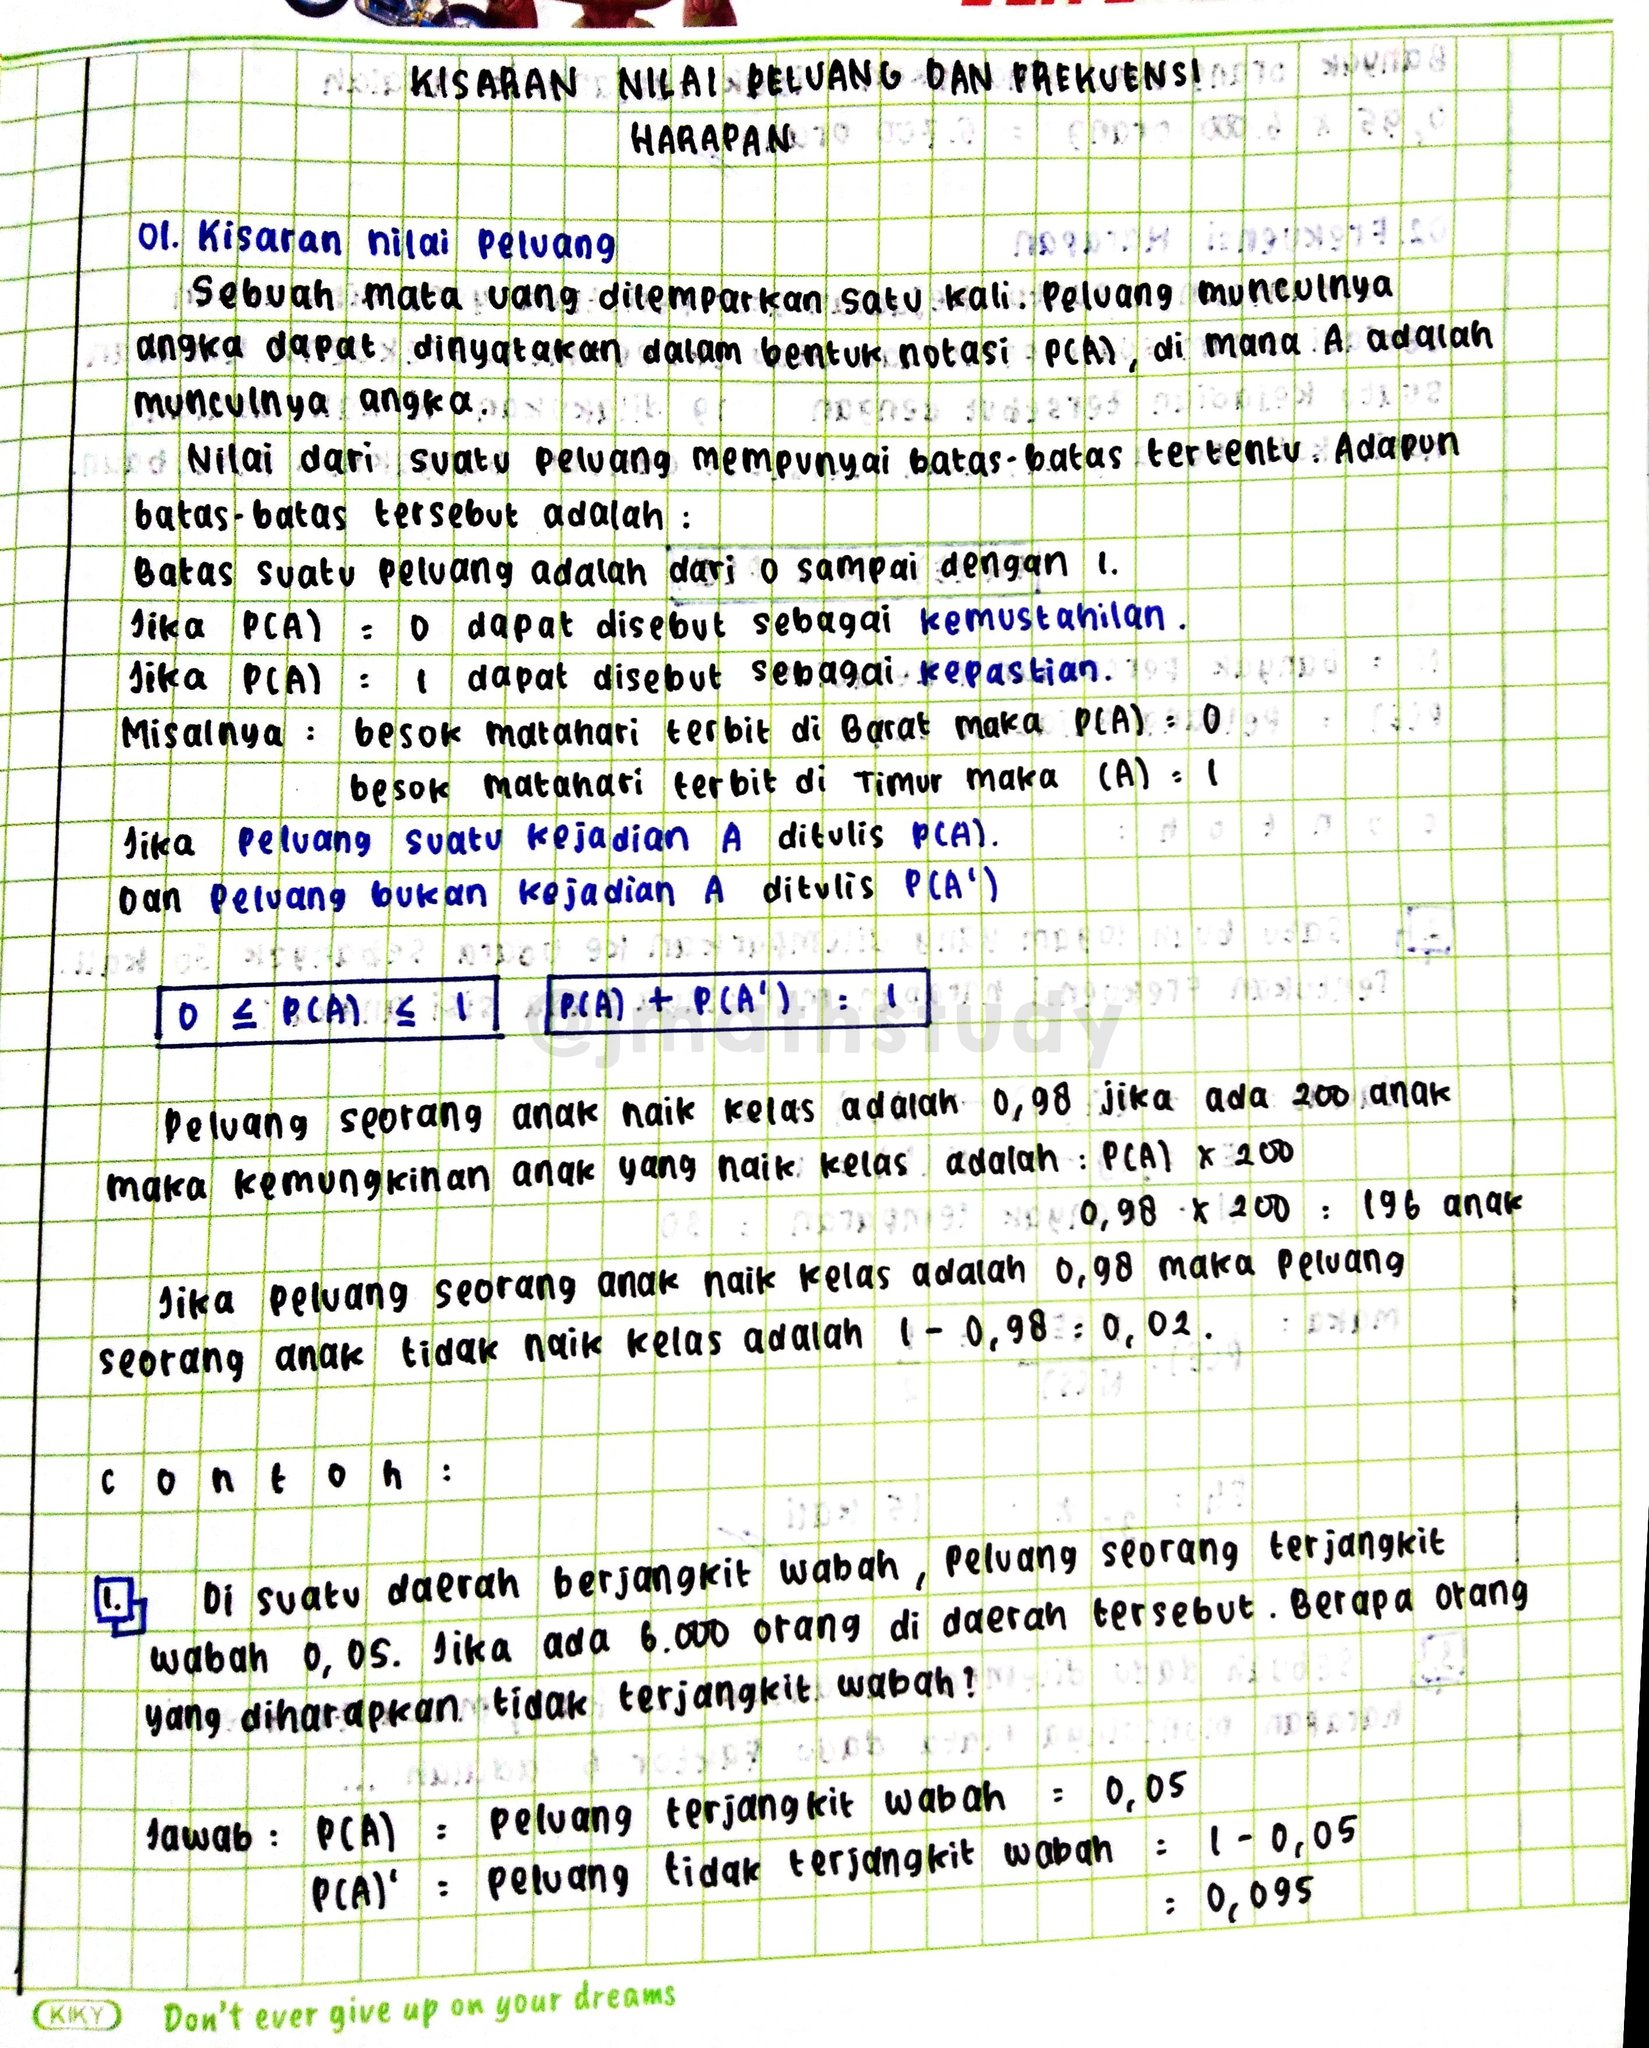 KISARAN NILAI PELUANG DAN FREKUENSI
HARAPAN
01. Kisaran nilai peluang
Sebuah mata uang dilemparkan satu kali. Peluang munculnya
angka dapat dinyatakan dalam bentuk notasi P(A), di mana A adalah
munculnya angka.
Nilai dari suatu peluang mempunyai batas-batas tertentu. Adapun
batas-batas tersebut adalah :
Batas suatu peluang adalah dari 0 sampai dengan 1.
Jika P(A) = 0 dapat disebut sebagai kemustahilan.
Jika P(A) = 1 dapat disebut sebagai kepastian.
Misalnya : besok matahari terbit di Barat maka P(A) = 0
besok matahari terbit di Timur maka (A) = 1
Jika peluang suatu kejadian A ditulis P(A).
Dan peluang bukan kejadian A ditulis P(A')
0 ≤ P(A) ≤ 1 P(A) + P(A') = 1
@jmathstudy
Peluang seorang anak naik kelas adalah 0,98 jika ada 200 anak
maka kemungkinan anak yang naik kelas adalah : P(A) x 200
0,98 x 200 = 196 anak
Jika peluang seorang anak naik kelas adalah 0,98 maka peluang
seorang anak tidak naik kelas adalah 1 - 0,98 = 0,02.
c o n t o h :
1. Di suatu daerah berjangkit wabah, peluang seorang terjangkit
wabah 0,05. Jika ada 6.000 orang di daerah tersebut. Berapa orang
yang diharapkan tidak terjangkit wabah?
Jawab : P(A) = peluang terjangkit wabah = 0,05
P(A)' = peluang tidak terjangkit wabah = 1 - 0,05
= 0,095
KIKY Don't ever give up on your dreams